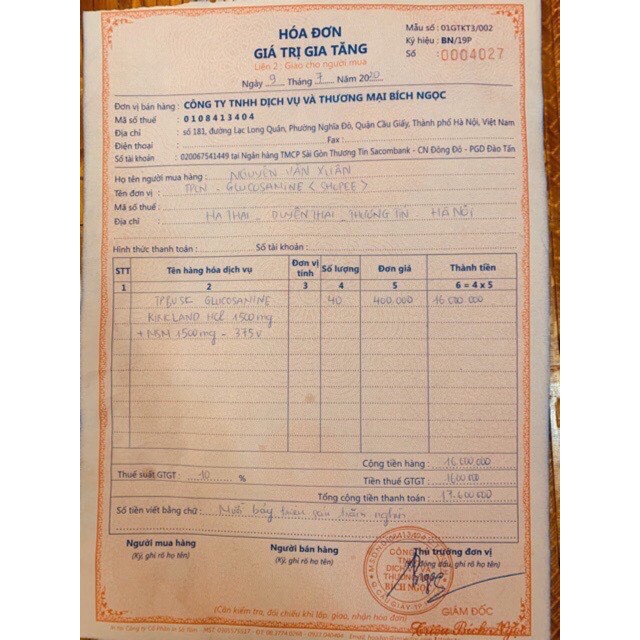 HÓA ĐƠN
GIÁ TRỊ GIA TĂNG
Liên 2 : Giao cho người mua
Ngày 9 Tháng 7 Năm 2020
Mẫu số : 01GTKT3/002
Ký hiệu : BN/19P
Số : 0004027
Đơn vị bán hàng : CÔNG TY TNHH DỊCH VỤ VÀ THƯƠNG MẠI BÍCH NGỌC
Mã số thuế : 0108413404
Địa chỉ : số 181, đường Lạc Long Quân, Phường Nghĩa Đô, Quận Cầu Giấy, Thành phố Hà Nội, Việt Nam
Điện thoại : Fax :
Số tài khoản : 020067541449 tại Ngân hàng TMCP Sài Gòn Thương Tín Sacombank - CN Đông Đô - PGD Đào Tấn
Họ tên người mua hàng : NGUYỄN VĂN XUÂN
Tên đơn vị : GLUCOSAMINE (SHOPEE)
Mã số thuế :
Địa chỉ : HẠ THÁI - DUYÊN THÁI - THƯỜNG TÍN - HÀ NỘI
Hình thức thanh toán : Số tài khoản :
STT Tên hàng hóa dịch vụ Đơn vị tính Số lượng Đơn giá Thành tiền
1 2 3 4 5 6 = 4 x 5
TPBVSK GLUCOSAMINE 40 400.000 16.000.000
KIRKLAND HCL 1500mg
+ MSM 1500mg - 375v
Cộng tiền hàng : 16.000.000
Thuế suất GTGT : 10 % Tiền thuế GTGT : 1.600.000
Tổng cộng tiền thanh toán : 17.600.000
Số tiền viết bằng chữ : Mười bảy triệu sáu trăm nghìn
Người mua hàng Người bán hàng Thủ trưởng đơn vị
(Ký, ghi rõ họ tên) (Ký, ghi rõ họ tên) (Ký, đóng dấu, ghi rõ họ tên)
CÔNG TY
TNHH
DỊCH VỤ VÀ
THƯƠNG MẠI
BÍCH NGỌC
GIÁM ĐỐC
Triệu Bích
(Cần kiểm tra, đối chiếu khi lập, giao, nhận hóa đơn)